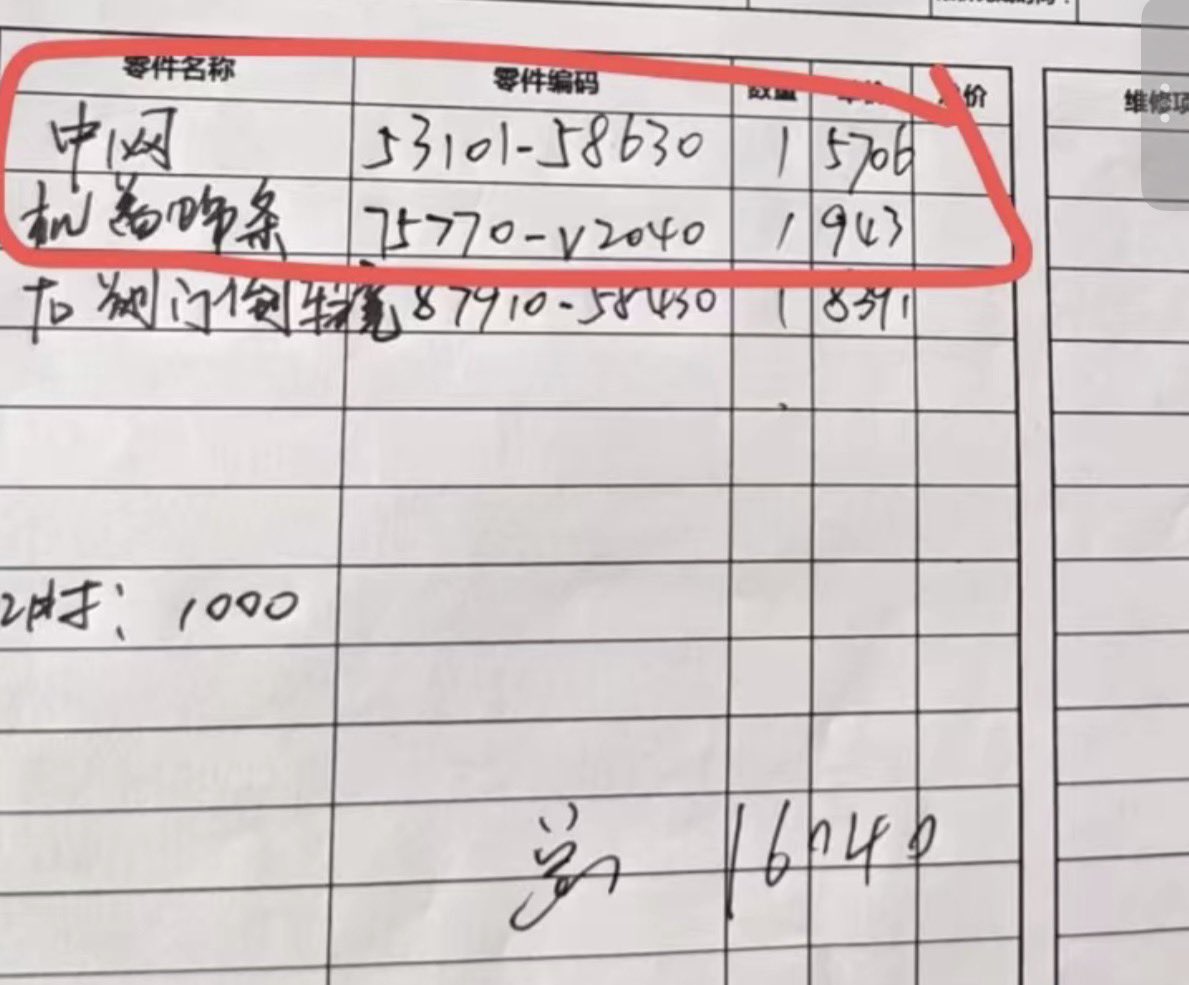 零件名称 零件编码 数量 单价 总价 维修项
中网 53101-58630 1 5706
机盖饰条 75770-V2040 1 943
右侧门倒车镜 87910-58430 1 8391
工时：1000
总 16040